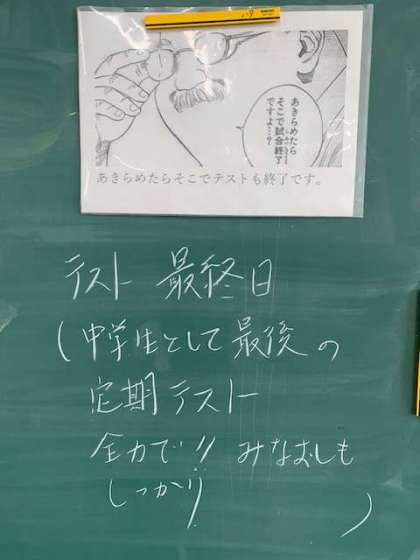 あきらめたら
そこで試合終了
ですよ…?
あきらめたらそこでテストも終了です。
テスト 最終日
(中学生として最後の
定期テスト
全力で!! みなおしも
しっかり)